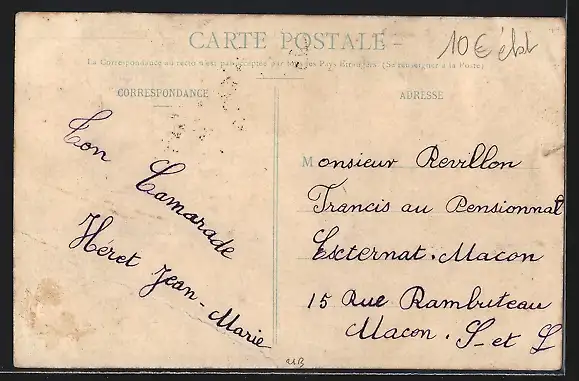 CARTE POSTALE
10€ ébt
La Correspondance au recto n'est pas acceptée par tous les Pays Etrangers (Se renseigner à la Poste)
CORRESPONDANCE
Ton
Camarade
Héret Jean-Marie
ADRESSE
Monsieur Revillon
Francis au Pensionnat
Externat. Macon
15 Rue Rambuteau
Macon. S-et L